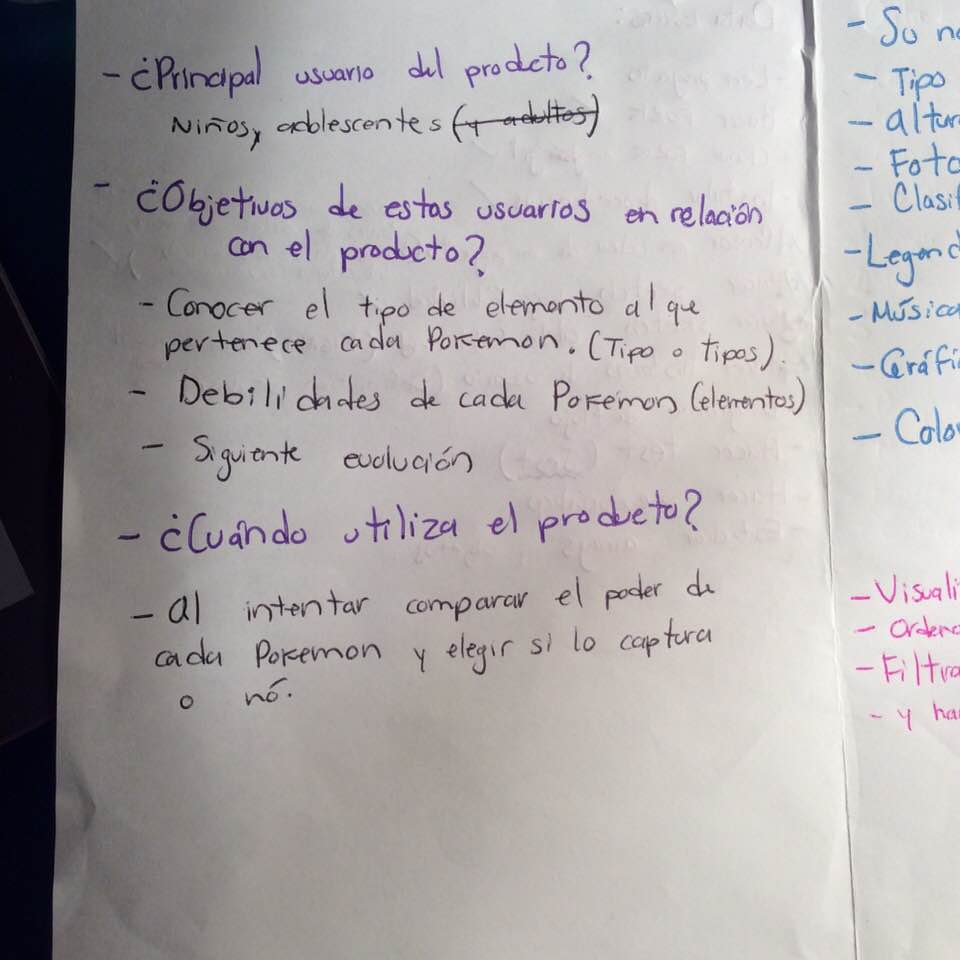 - ¿Principal usuario del producto?
Niños, adolescentes (y adultos)
- ¿Objetivos de estas usuarios en relación
con el producto?
- Conocer el tipo de elemento al que
pertenece cada Pokemon. (Tipo o tipos).
- Debilidades de cada Pokemon (elementos)
- Siguiente evolución
- ¿Cuándo utiliza el producto?
- Al intentar comparar el poder de
cada Pokemon y elegir si lo captura
o nó.
- Su
- Tipo
-
- Foto
-
-
-
-
-
-
-
-
- y